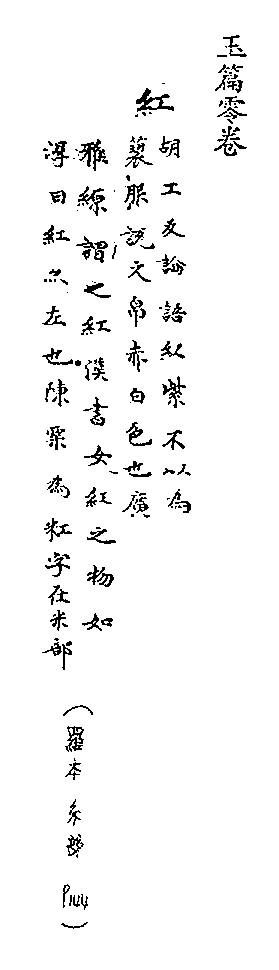 玉篇零卷
紅
胡工反論語紅紫不以為
褻服說文帛赤白色也廣
雅縓謂之紅漢書女紅之物如
淳曰紅亦左也陳粟為粠字在米部
(羅本糸部 P144)